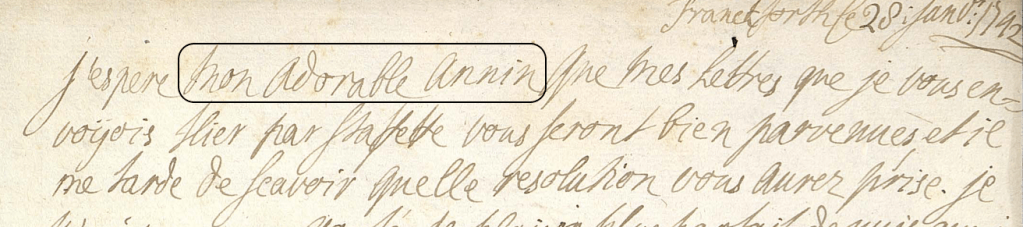 Franckforth le 28: Janv: 1742
j'espere mon adorable annin que mes lettres que je vous en=
voijois hier par staffette vous seront bien parvenues et il
me tarde de scavoir quelle resolution vous aurez prise. je